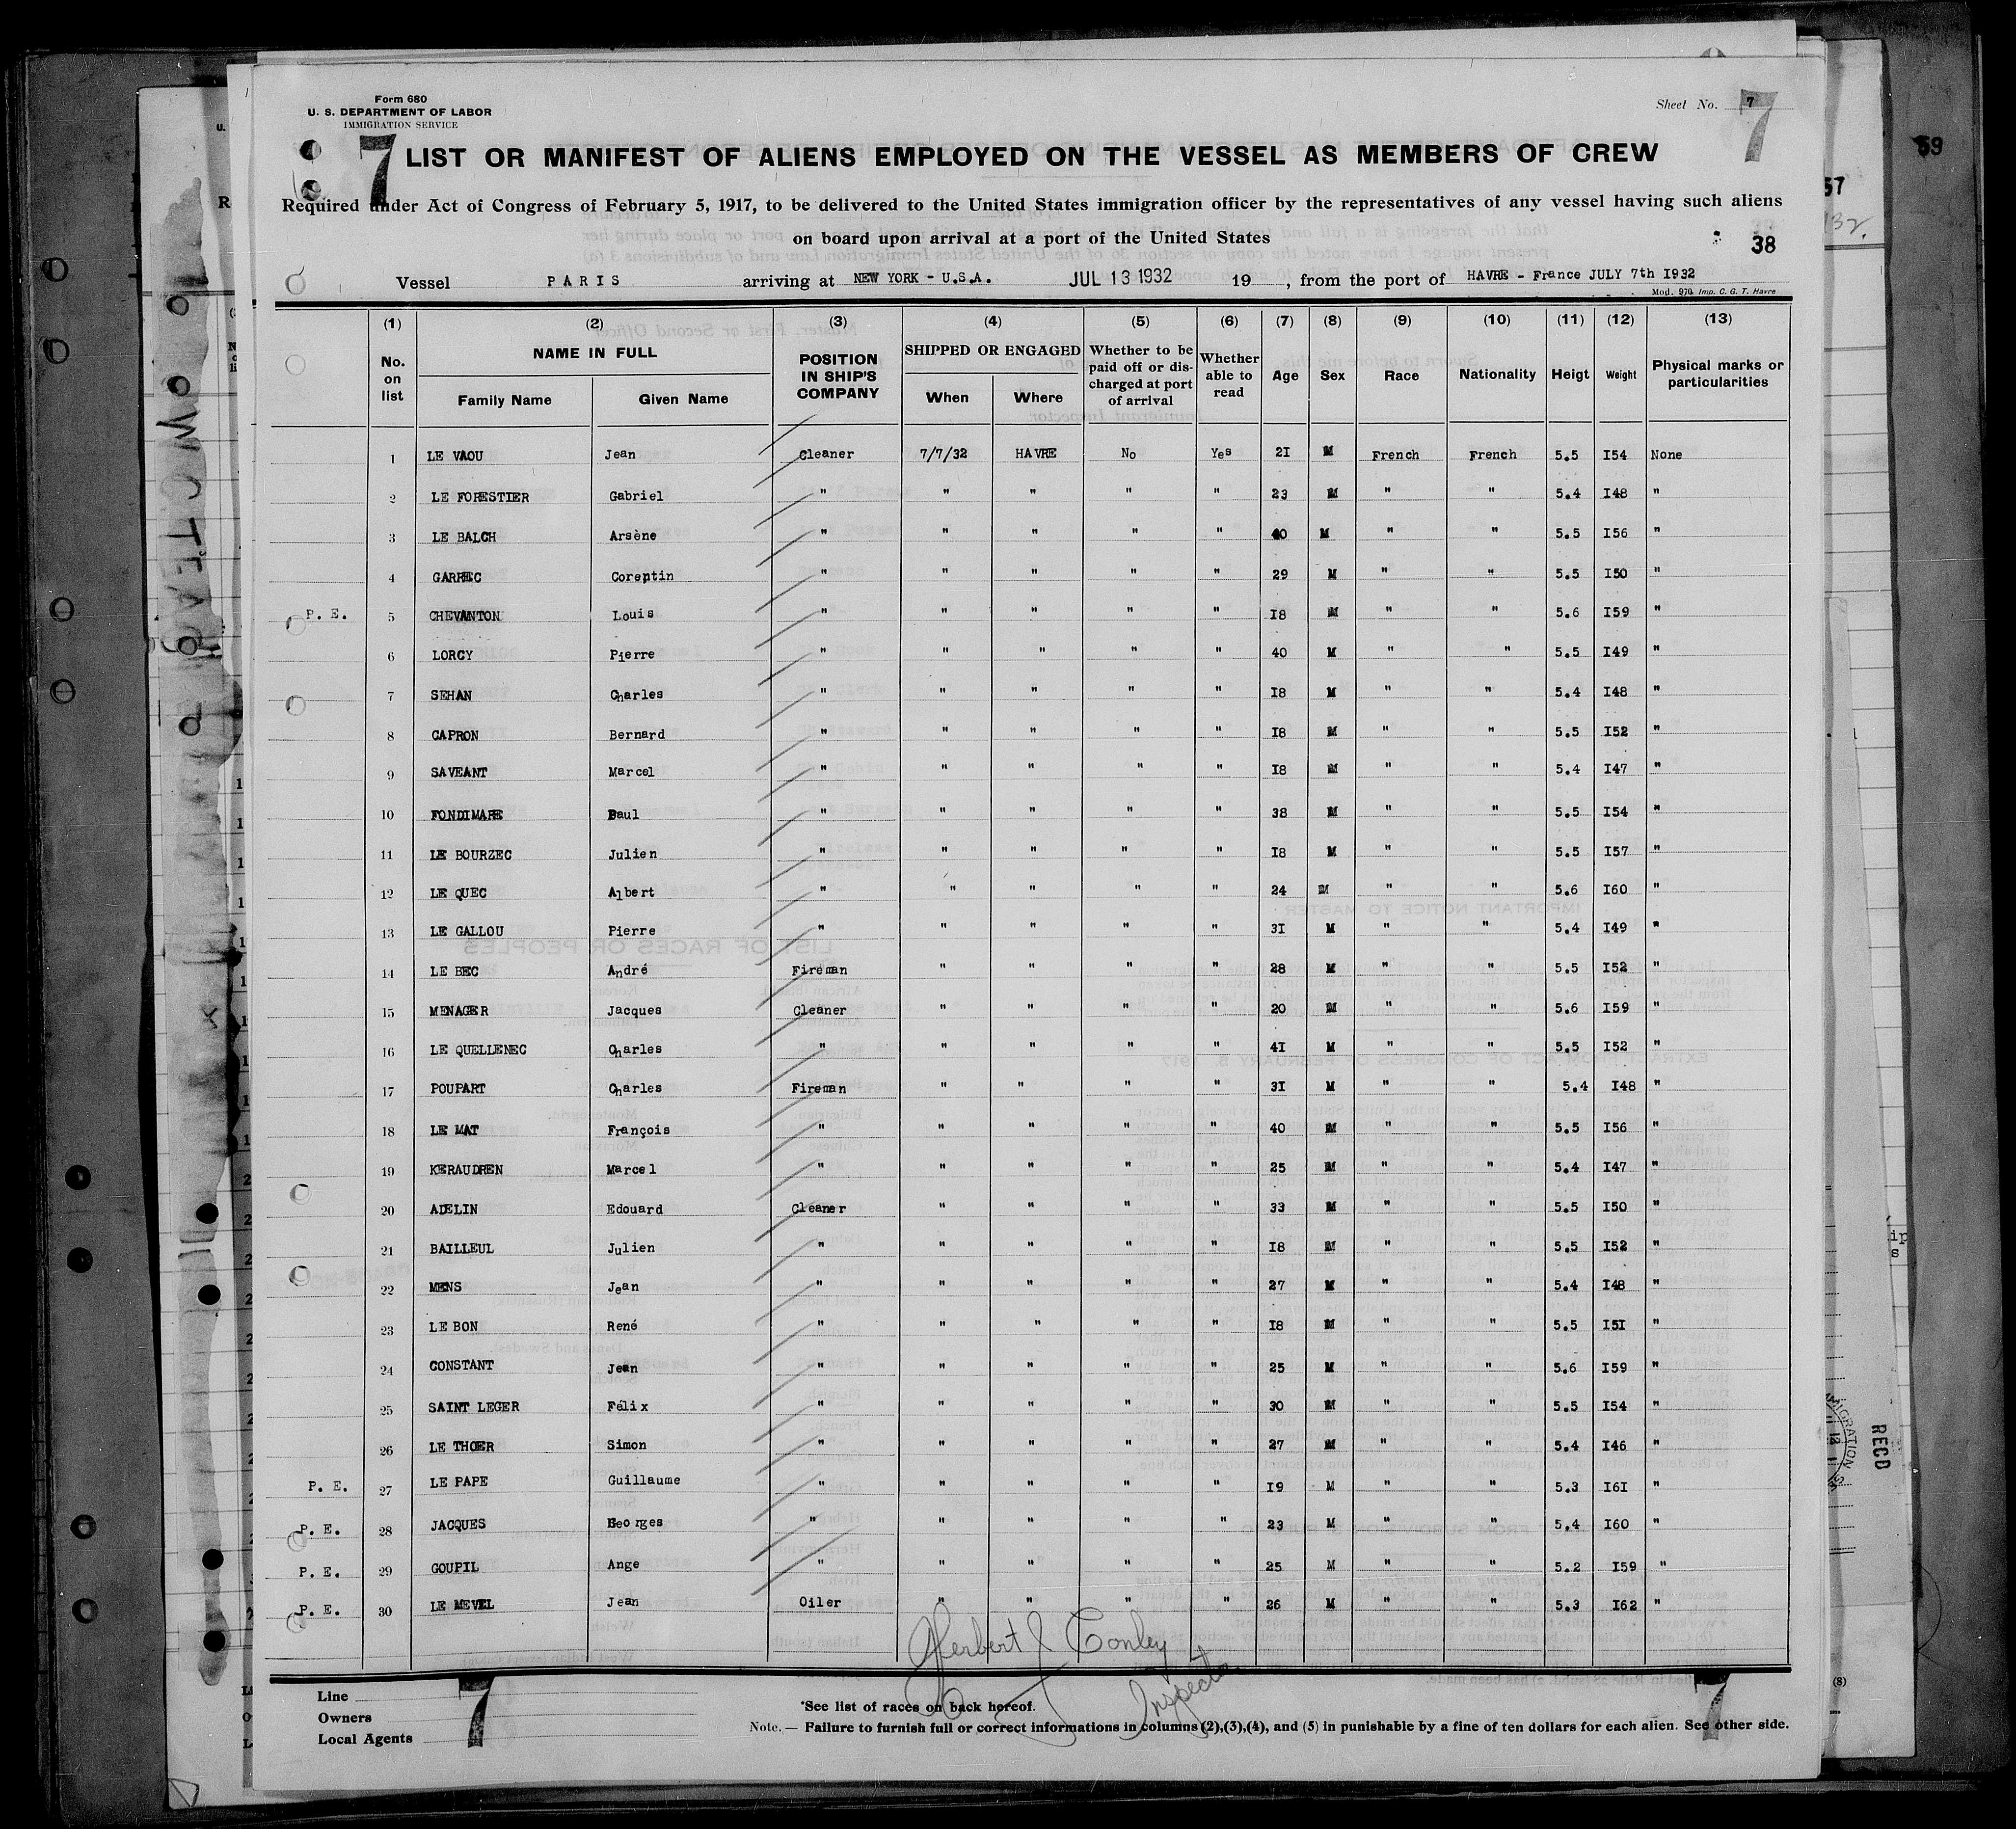 Form 680
U. S. DEPARTMENT OF LABOR
IMMIGRATION SERVICE
Sheet No. 7
7
7 LIST OR MANIFEST OF ALIENS EMPLOYED ON THE VESSEL AS MEMBERS OF CREW
Required under Act of Congress of February 5, 1917, to be delivered to the United States immigration officer by the representatives of any vessel having such aliens
on board upon arrival at a port of the United States
38
Vessel PARIS arriving at NEW YORK - U.S.A. JUL 13 1932 19 , from the port of HAVRE - France JULY 7th 1932
Mod. 970 Imp. C. G. T. Havre
(1) (2) (3) (4) (5) (6) (7) (8) (9) (10) (11) (12) (13)
No. on list NAME IN FULL Family Name Given Name POSITION IN SHIP'S COMPANY SHIPPED OR ENGAGED When Where Whether to be paid off or discharged at port of arrival Whether able to read Age Sex Race Nationality Heigt Weight Physical marks or particularities
1 LE VAOU Jean Cleaner 7/7/32 HAVRE No Yes 21 M French French 5.5 154 None
2 LE FORESTIER Gabriel " " " " " 23 M " " 5.4 148 "
3 LE BALCH Arsène " " " " " 40 M " " 5.5 156 "
4 GARREC Corentin " " " " " 29 M " " 5.5 150 "
P. E. 5 CHEVANTON Louis " " " " " 18 M " " 5.6 159 "
6 LORCY Pierre " " " " " 40 M " " 5.5 149 "
7 SEHAN Charles " " " " " 18 M " " 5.4 148 "
8 CAPRON Bernard " " " " " 18 M " " 5.5 152 "
9 SAVEANT Marcel " " " " " 18 M " " 5.4 147 "
10 FONDIMARE Paul " " " " " 38 M " " 5.5 154 "
11 LE BOURZEC Julien " " " " " 18 M " " 5.5 157 "
12 LE QUEC Albert " " " " " 24 M " " 5.6 160 "
13 LE GALLOU Pierre " " " " " 31 M " " 5.4 149 "
14 LE BEC André Fireman " " " " 28 M " " 5.5 152 "
15 MENAGER Jacques Cleaner " " " " 20 M " " 5.6 159 "
16 LE QUELLENEC Charles " " " " " 41 M " " 5.5 152 "
17 POUPART Charles Fireman " " " " 31 M " " 5.4 148 "
18 LE MAT François " " " " " 40 M " " 5.5 156 "
19 KERAUDREN Marcel " " " " " 25 M " " 5.4 147 "
20 ADELIN Edouard Cleaner " " " " 33 M " " 5.5 150 "
21 BAILLEUL Julien " " " " " 18 M " " 5.5 152 "
22 MENS Jean " " " " " 27 M " " 5.4 148 "
23 LE BON René " " " " " 18 M " " 5.5 151 "
24 CONSTANT Jean " " " " " 25 M " " 5.6 159 "
25 SAINT LEGER Félix " " " " " 30 M " " 5.5 154 "
26 LE THOER Simon " " " " " 27 M " " 5.4 146 "
P. E. 27 LE PAPE Guillaume " " " " " 19 M " " 5.3 161 "
P. E. 28 JACQUES Georges " " " " " 23 M " " 5.4 160 "
P. E. 29 GOUPIL Ange " " " " " 25 M " " 5.2 159 "
P. E. 30 LE MEVEL Jean Oiler " " " " 26 M " " 5.3 162 "
Herbert J Conley
Inspector
Line
Owners
Local Agents
7
*See list of races on back hereof.
Note. — Failure to furnish full or correct informations in columns (2),(3),(4), and (5) in punishable by a fine of ten dollars for each alien. See other side.
7
59
57
RECD